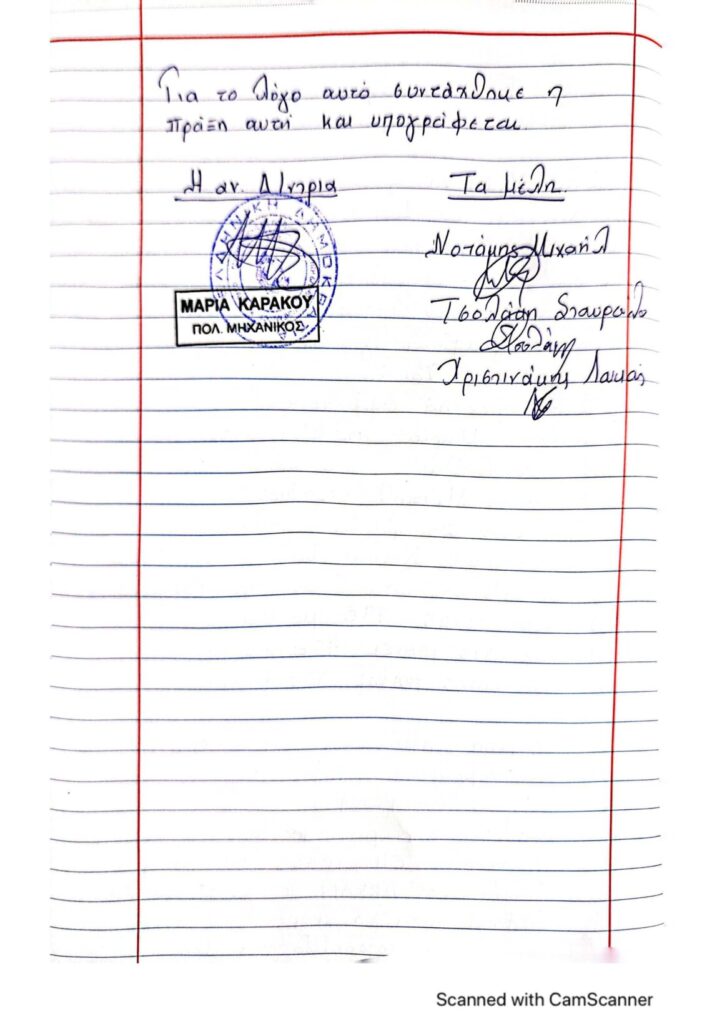 Για το λόγο αυτό συντάχθηκε η
πράξη αυτή και υπογράφεται.
Η αν. Δ/ντρια
Τα μέλη.
ΕΛΛΗΝΙΚΗ ΔΗΜΟΚΡΑΤΙΑ
ΜΑΡΙΑ ΚΑΡΑΚΟΥ
ΠΟΛ. ΜΗΧΑΝΙΚΟΣ
Νοτάμης Μιχαήλ
Τσολάκη Σταυρούλα
Χριστινάκης Λουκάς
Scanned with CamScanner